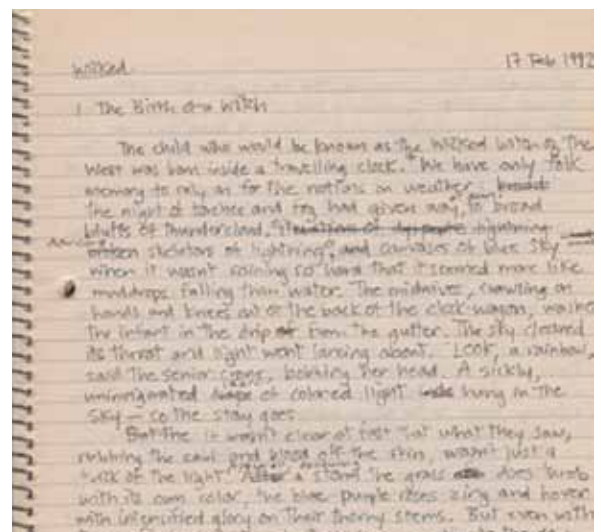 Wicked 17 Feb 1992
1 The Birth of a Witch
The child who would be known as the Wicked Witch of the
West was born inside a travelling clock. We have only folk
memory to rely on for the notions on weather:
the night of and fog had given way, to broad
bluffs of thundercloud,
skeletons of lightning, and canvases of blue sky
when it wasn't raining so hard that it seemed more like
mud drops falling than water. The midwives, crawling on
hands and knees out of the back of the clock-wagon, washed
the infant in the drip from the gutter. The sky cleared
its throat and light went lancing about. Look, a rainbow,
said the senior crone, bobbing her head. A sickly,
of colored light hung in the
sky — so the story goes.
But the it wasn't clear at first that what they saw,
rubbing the caul and blood off the skin, wasn't just a
trick of the light. After a storm the grass does throb
with its own color, the blue purple roses zing and hover
with intensified glory on their thorny stems. But even with